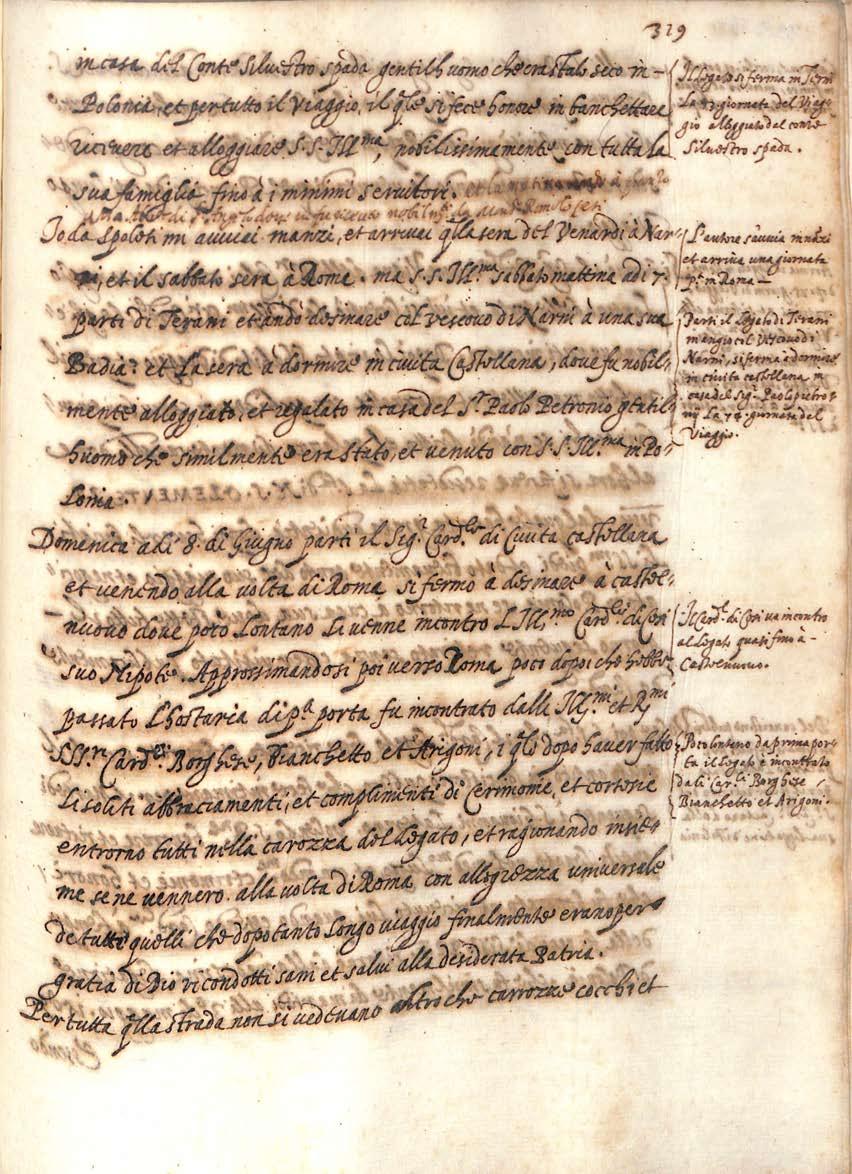 319
in casa del Conte Silvestro spada gentilhuomo che era stato seco in
Polonia, et per tutto il Viaggio, il qle si fece honore in banchettare
ricevere et alloggiare S.S. Ill.ma, nobilissimamente con tutta la
sua famiglia fino à i minimi servitori. et la matina andò à
Io da Spoleti mi avviai inanzi, et arrivai qlla sera del Venardi à Nar-
ni, et il sabbato sera à Roma. ma S.S. Ill.ma sabbato mattina adi 7.
parti di Terani et andò desinare col vescovo di Narni à una sua
Badia: et La sera à dormire in civita Castellana, dove fu nobil-
mente alloggiato, et regalato in casa del S.r Paolo Petronio gentil-
huomo che similmente era stato, et venuto con S.S. Ill.ma in Po-
lonia.
Domenica adi 8. di Giugno parti il Sig.r Card.le di Civita castellana
et venendo alla volta di Roma si fermo à desinare à castel-
nuovo dove poco Lontano Li venne incontro L'Ill.mo Card.le di Cesi
suo Nipote. Approssimandosi poi verso Roma poco dopoi che hebbe
passato L'hostaria di p.a porta fu incontrato dalli Ill.mi et R.mi
SSS.ri Card.li Borghese, Bianchetto et Arigoni, i qli dopo haver fatto
Li soliti abbraciamenti, et complimenti di Cerimonie, et cortesie
entrorno tutti nella carozza del Legato, et ragionando insie-
me se ne vennero alla volta di Roma con allegrezza universale
de tutti quelli che dopo tanto Longo viaggio finalmente erano per
gratia di Dio ricondotti sani et salvi alla desiderata Patria.
Per tutta qlla strada non si vedevano altro che carrozze cocchi et
Il Legato si ferma in Terni
La 73. giornata del Viag-
gio alloggiato dal conte
Silvestro spada.
L'autore s'avvia innanzi
et arriva una giornata
p.a in Roma
Parti il Legato di Terani
mangio col Vescovo di
Narni, si ferma à dormire
in civita castellana in
casa del Sig. Paolo
La 74. giornata del
Viaggio.
Il Card.le di Cesi va incontro
al Legato quasi fino à
Castelnuovo.
Poco lontano da prima por-
ta il Legato è incontrato
da li Car.li Borghese
Bianchetto et Arigoni.